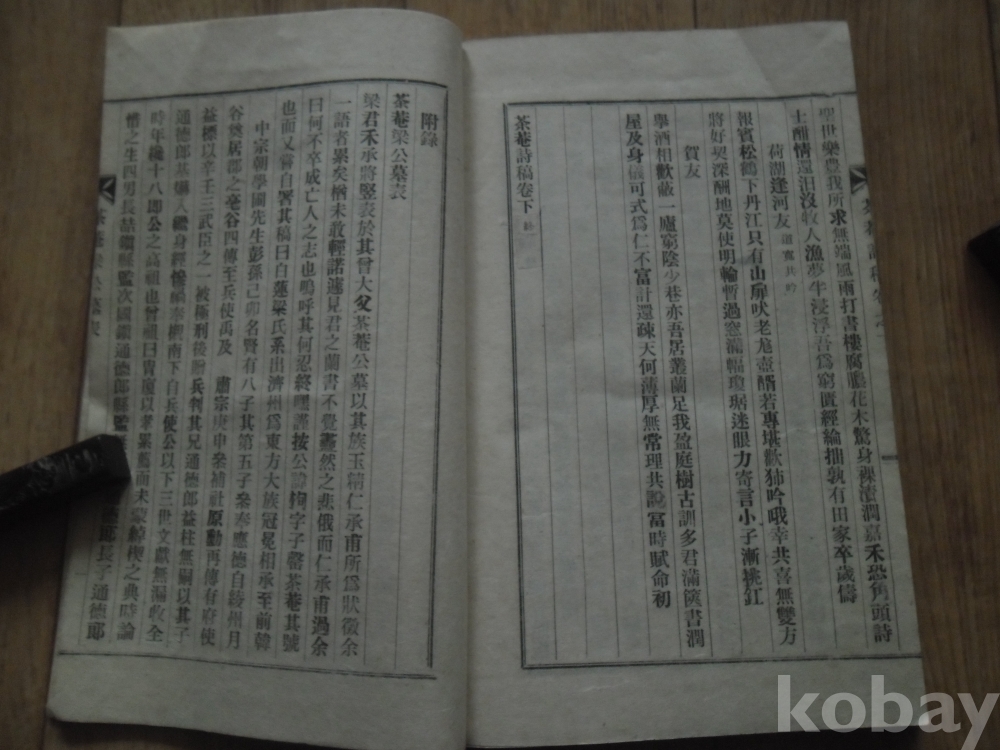 聖世樂豊我所求無端風雨打書樓腐膓花木驚身裸澆潤嘉禾恐角頭詩
士酣情還汨沒牧人漁夢半浸浮吾爲窮匱經綸拙孰有田家卒歲儔
荷湖逢河友
報賓松鶴下丹江只有山扉吠老尨壺酒若專堪歡狒吟哦幸共喜無雙方
將好契深酬地莫使明輪暫過窓滿幅瓊琚迷眼力寄言小子漸挑釭
賀友
擧酒相歡蔽一廬窮陰少巷亦吾居叢蘭足我盈庭樹古訓多君滿篋書潤
屋及身儀可式爲仁不富計還疎天何薄厚無常理共說富時賦命初
茶菴詩稿卷下 終
附錄
茶菴梁公墓表
梁君禾承將竪表於其曾大父茶菴公墓以其族玉精仁承甫所爲狀徵余
一語者累矣楢未敢輕諾遽見君之蘭書不覺衋然之悲俄而仁承甫過余
曰何不卒成亡人之志也嗚呼其何忍終嘿謹按公諱 字子 茶菴其號
也而又嘗自署其稿曰白蓮梁氏系出濟州爲東方大族冠冕相承至前韓
中宗朝學圃先生彭孫己卯名賢有八子其第五子叅奉應德自綾州月
谷奠居郡之亳谷四傳至兵使禹及 肅宗庚申叅補社原勳再傳有府使
益標以辛壬三武臣之一被極刑後贈兵判其兄通德郎益柱無嗣以其子
通德郎基 入繼身經 禍奉櫬南下自兵使公以下三世文獻無漏收全
時年纔十八卽公之高祖也曾祖曰 以孝累薦而未蒙綽楔之典時論
惜之生四男長喆 縣監次國 通德郎縣監 郎長子通德郎
kobay